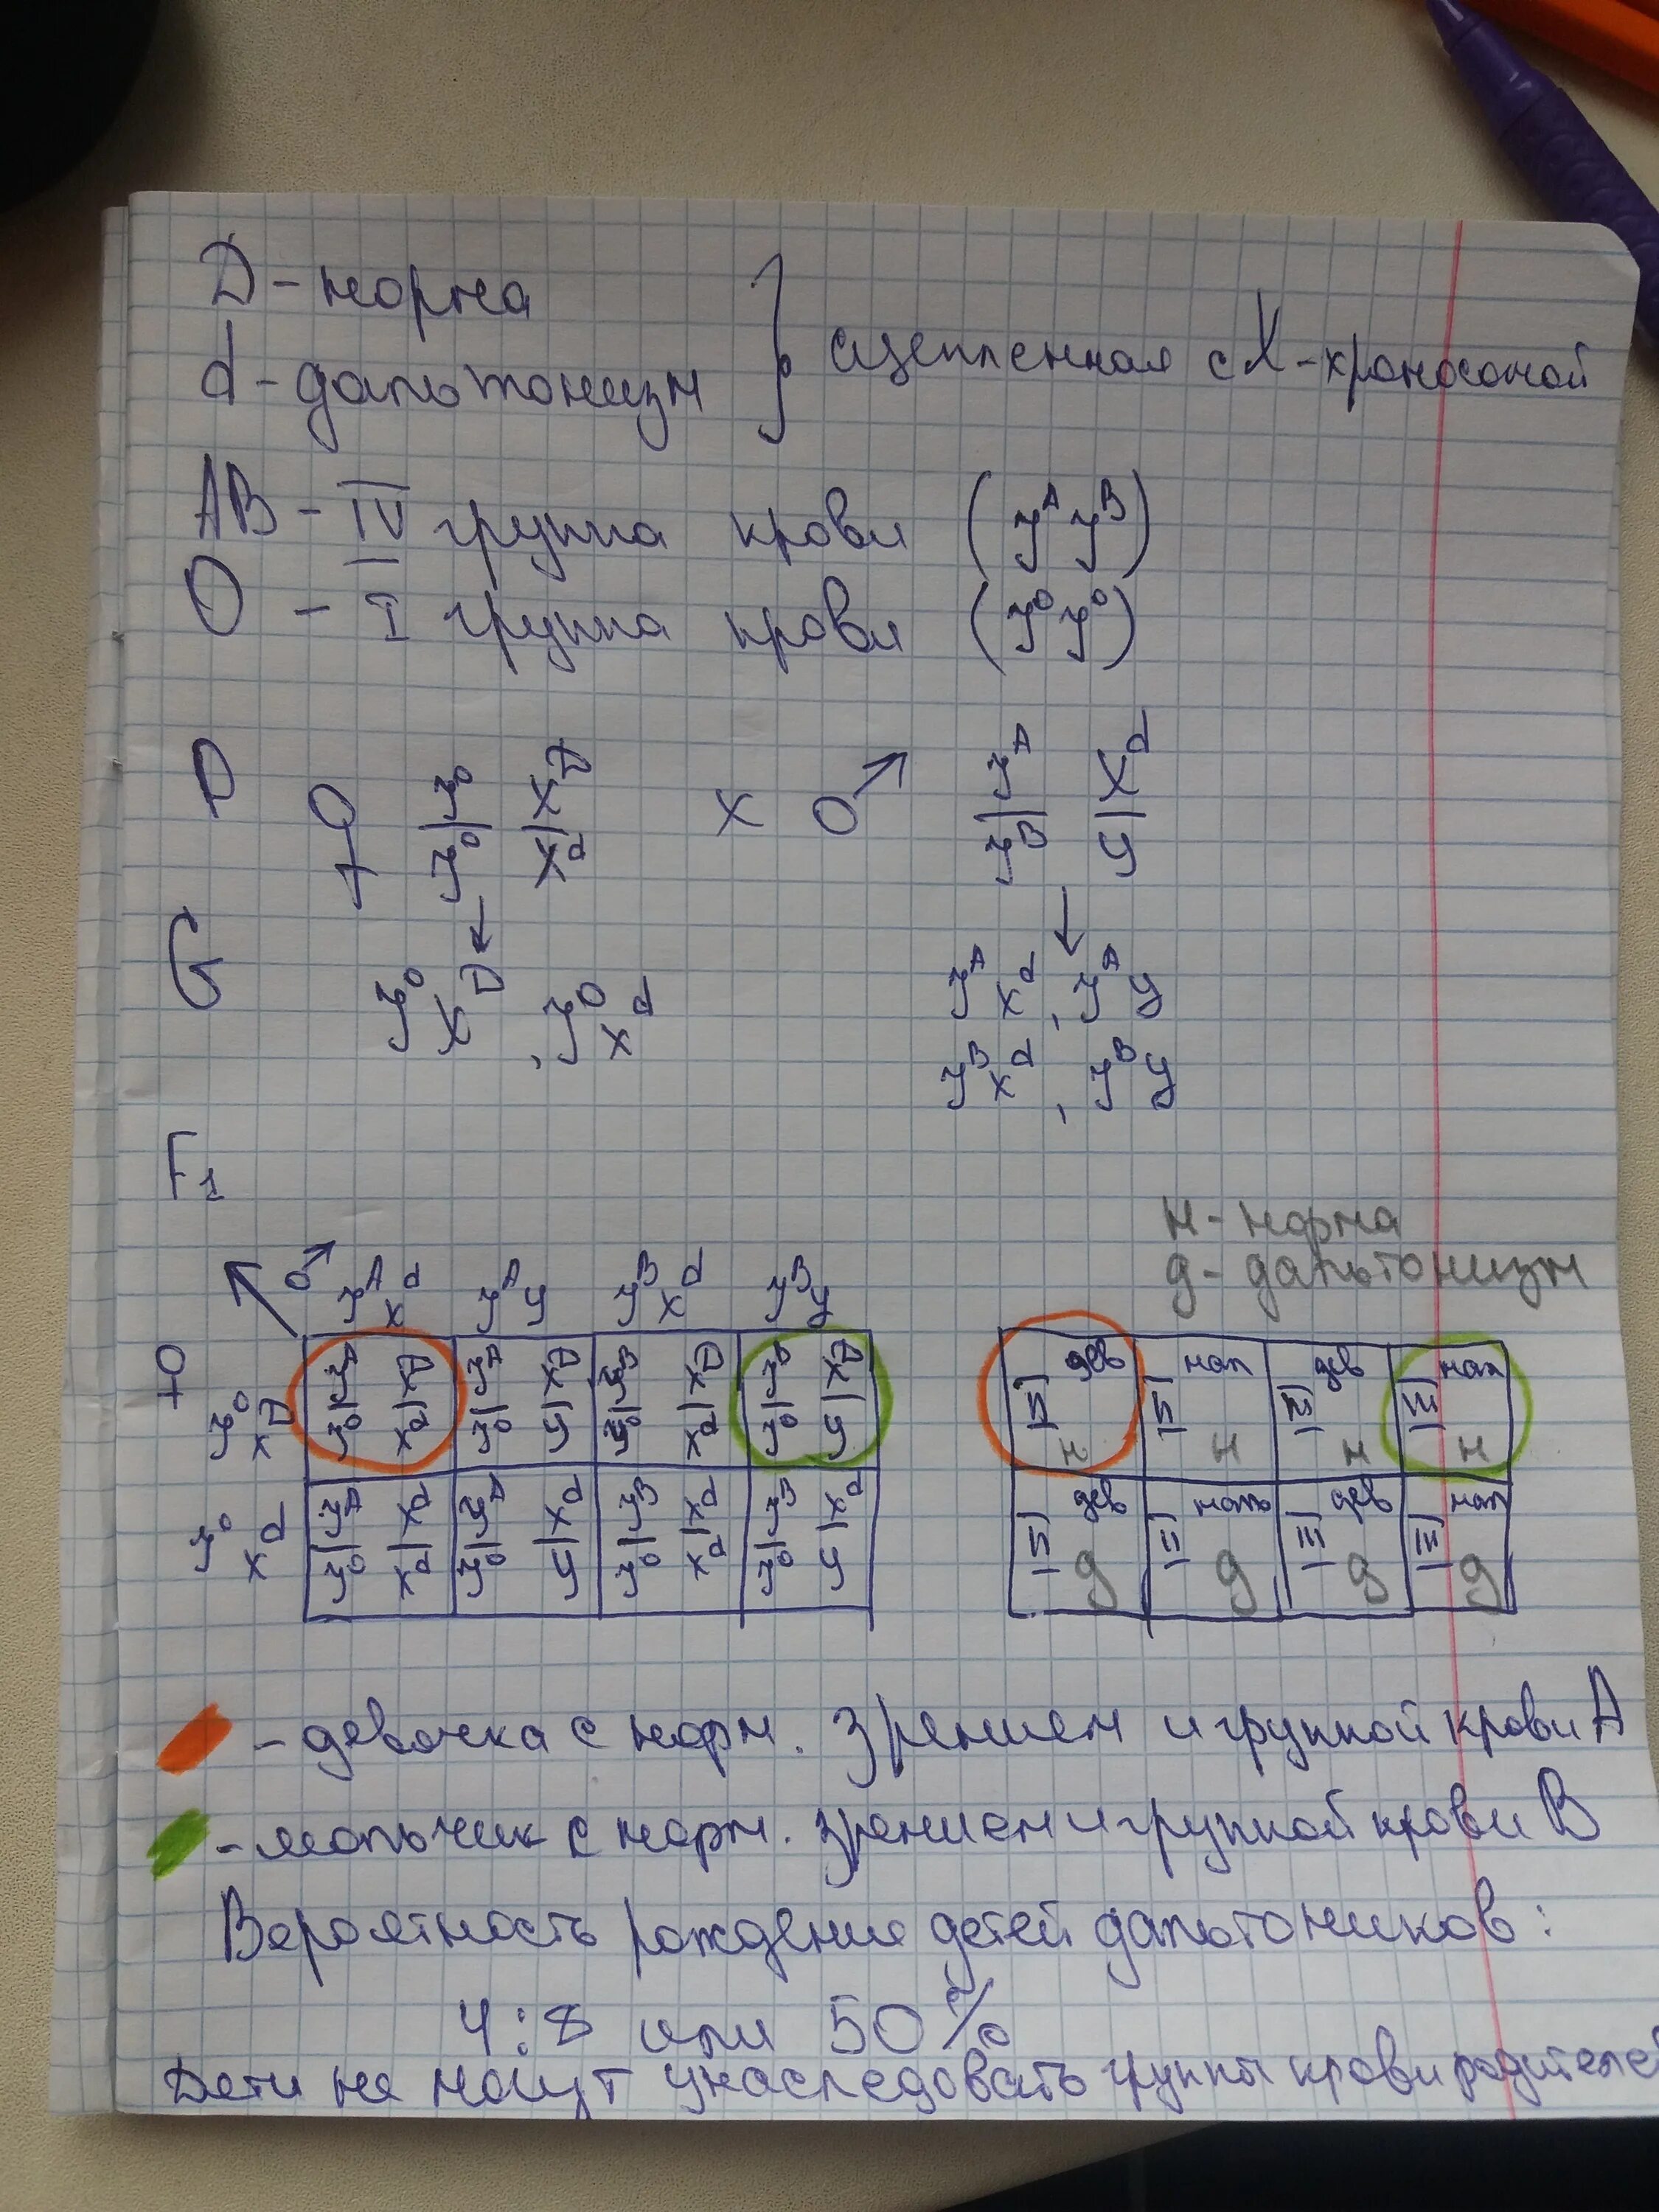 D - норма
d - дальтонизм } сцепленная с X-хромосомой
AB - IV группа крови (JᴬJᴮ)
O - I группа крови (J⁰J⁰)
P ♀ J⁰|J⁰ Xᵈ|Xᴰ x ♂ Jᴮ|Jᴬ y|Xᵈ
G J⁰Xᴰ, J⁰Xᵈ JᴬXᵈ, Jᴬy
JᴮXᵈ, Jᴮy
F₁
н - норма
д - дальтонизм
♂ JᴬXᵈ Jᴬy JᴮXᵈ Jᴮy
♀ J⁰Xᴰ J⁰|Jᴬ Xᵈ|Xᴰ J⁰|Jᴬ y|Xᴰ J⁰|Jᴮ Xᵈ|Xᴰ J⁰|Jᴮ y|Xᴰ
J⁰Xᵈ J⁰|Jᴬ Xᵈ|Xᵈ J⁰|Jᴬ y|Xᵈ J⁰|Jᴮ Xᵈ|Xᵈ J⁰|Jᴮ y|Xᵈ
II дев н II мал н III дев н III мал н
II дев д II мал д III дев д III мал д
- девочка с норм. зрением и группой крови A
- мальчик с норм. зрением и группой крови B
Вероятность рождение детей дальтоников:
4:8 или 50%
Дети не могут унаследовать группы крови родителей